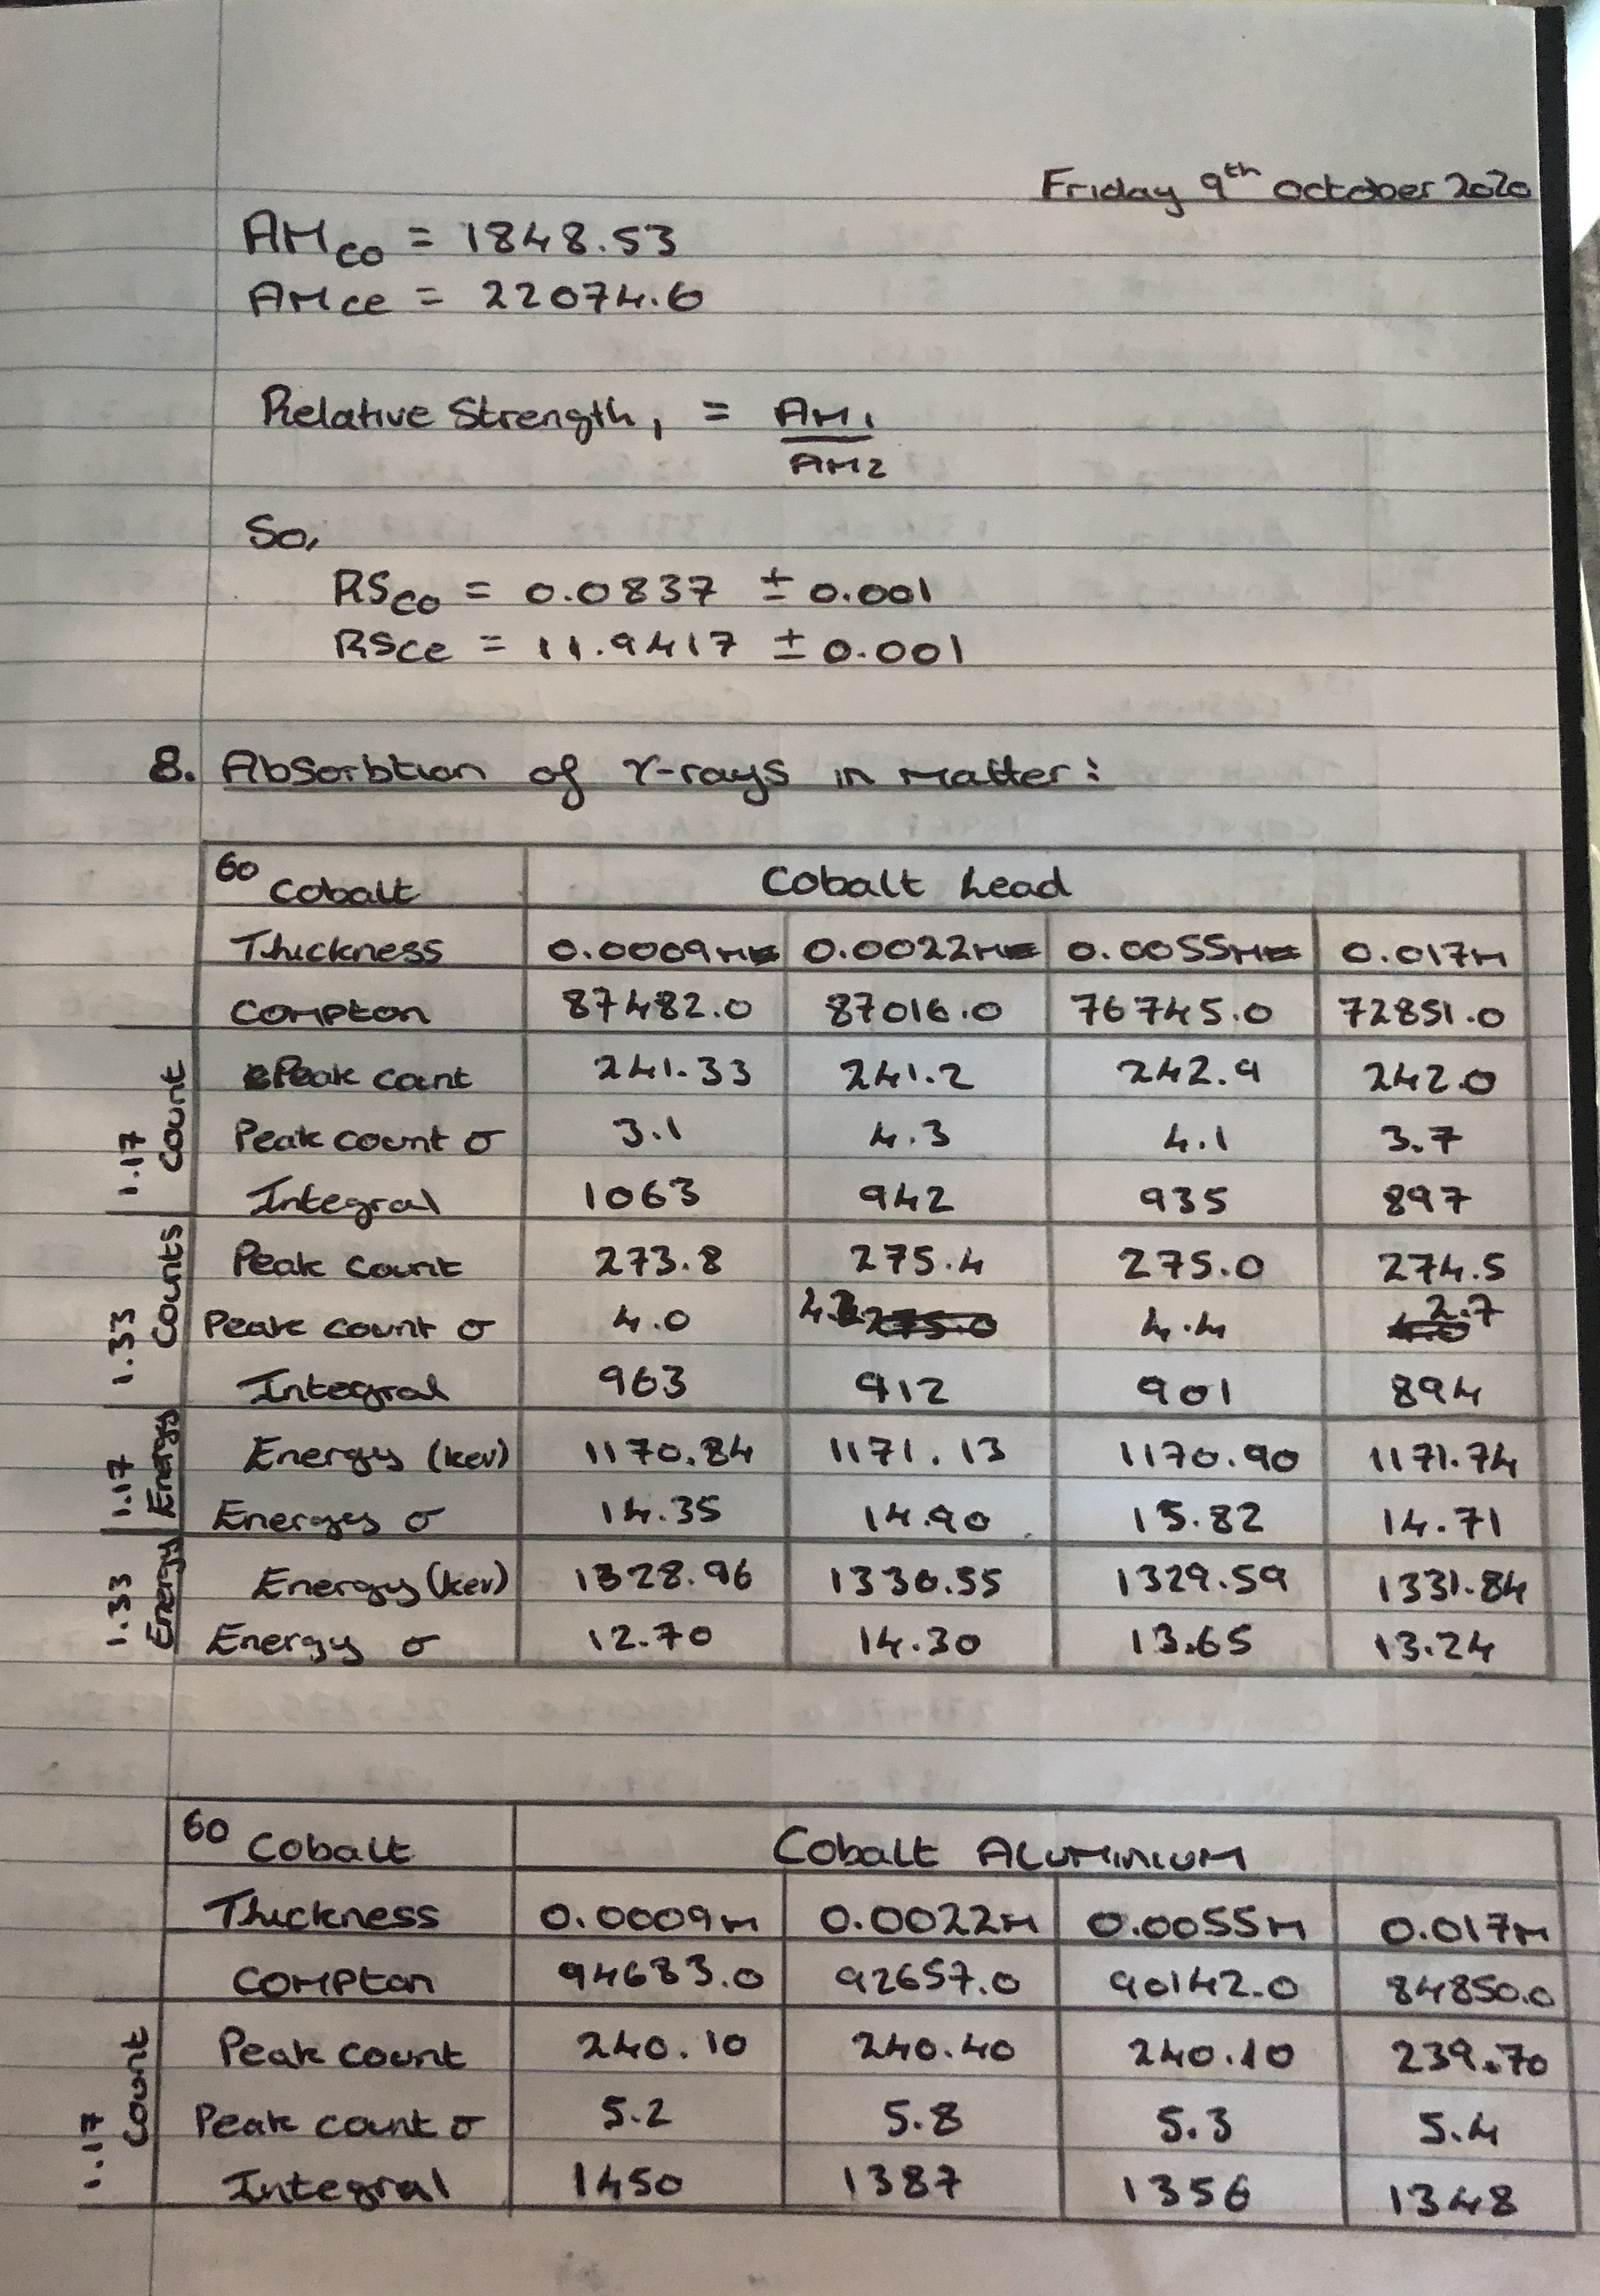 Friday 9th October 2020
AMco = 1848.53
AMce = 22074.6
Relative Strength, = AM1
AM2
So,
RSco = 0.0837 ± 0.001
RSce = 11.9417 ± 0.001
8. Absorbtion of γ-rays in matter:
60 Cobalt Cobalt Lead
Thickness 0.0009m 0.0022m 0.0055m 0.017m
Compton 87482.0 87016.0 76745.0 72851.0
1.17 Count
Peak count 241.33 241.2 242.9 242.0
Peak count σ 3.1 4.3 4.1 3.7
Integral 1063 942 935 897
1.33 Counts
Peak count 273.8 275.4 275.0 274.5
Peak count σ 4.0 4.4 2.7
Integral 963 912 901 894
1.17 Energy
Energy (kev) 1170.84 1171.13 1170.90 1171.74
Energy σ 14.35 14.90 15.82 14.71
1.33 Energy
Energy (kev) 1328.96 1330.55 1329.59 1331.84
Energy σ 12.70 14.30 13.65 13.24
60 Cobalt Cobalt Aluminium
Thickness 0.0009m 0.0022m 0.0055m 0.017m
Compton 94683.0 92657.0 90142.0 84850.0
1.17 Count
Peak count 240.10 240.40 240.10 239.70
Peak count σ 5.2 5.8 5.3 5.4
Integral 1450 1387 1356 1348